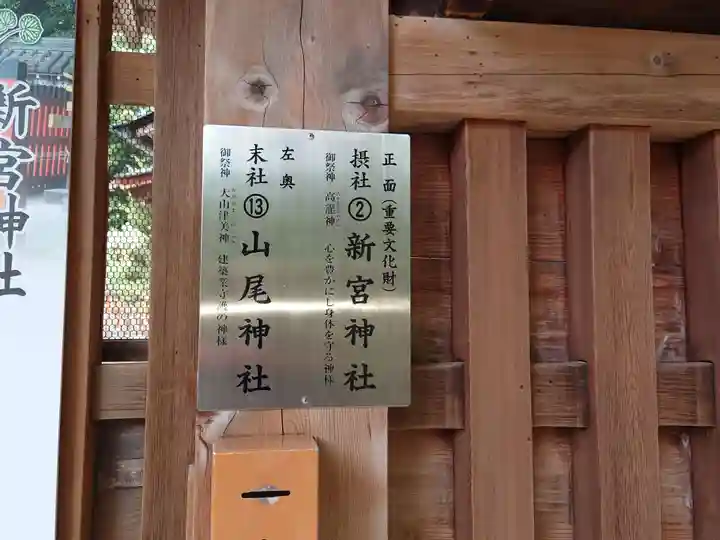 正面(重要文化財)
摂社②新宮神社
御祭神 高龗神 心を豊かにし身体を守る神様
左奥
末社⑬山尾神社
御祭神 大山津美神 建築業守護の神様
新宮神社